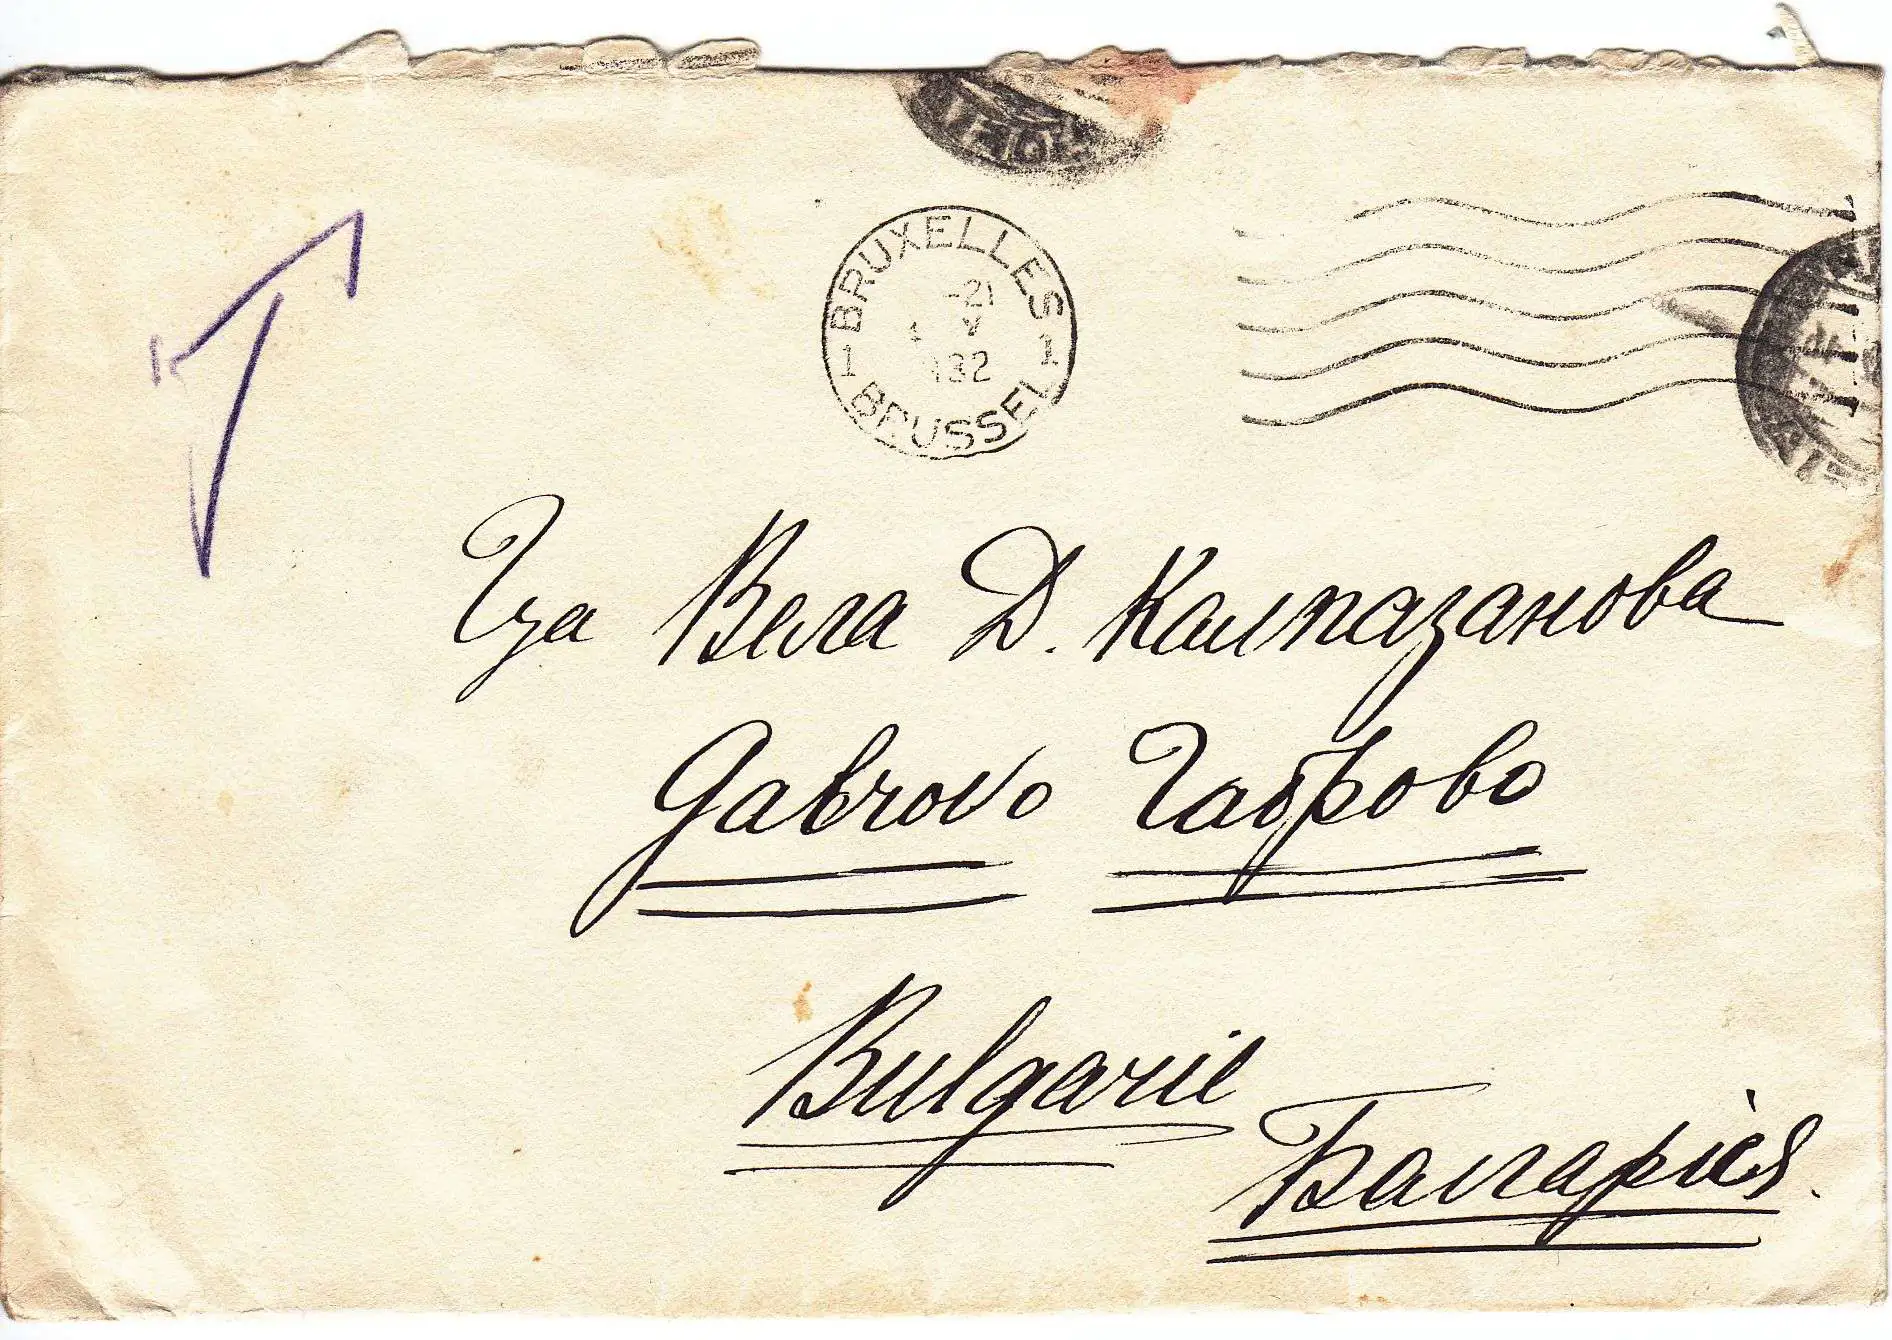 T
BRUXELLES
-21
1 V
1 932 1
BRUSSEL
Гца Вела Д. Калпазанова
Gabrovo Габрово
Bulgarie
Балгарія.